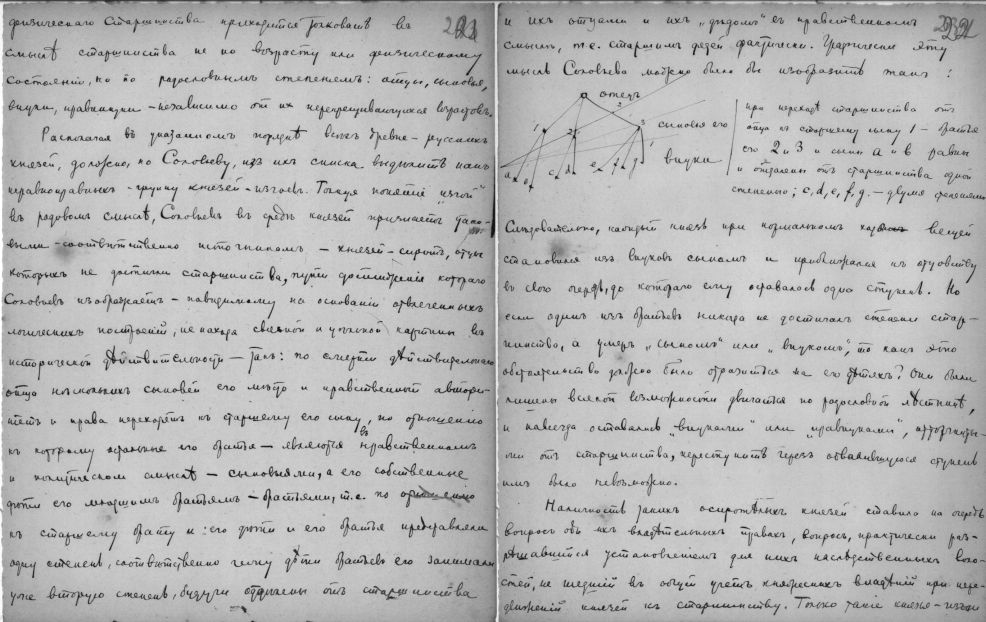 физическаго старшинства приходится толковать въ
смыслѣ старшинства не по возрасту или физическому
состоянію, но по родословнымъ степенемъ: отцы, сыновья,
внуки, правнуки – независимо от их перекрещивающихся возрастовъ.
Располагая въ указанномъ порядкѣ всѣхъ древне-русскихъ
князей, должно, по Соловьеву, изъ ихъ списка выдѣлить какъ
неравноправныхъ – группу князей-изгоевъ. Толкуя понятіе „изгой"
въ родовомъ смыслѣ, Соловьевъ въ средѣ князей признаетъ тако-
выми – соотвѣтственно источникамъ – князей-сиротъ, отцы
которыхъ не достигли старшинства, пути достиженія котораго
Соловьевъ изображаетъ – повидимому на основаніи отвлеченныхъ
логическихъ построеній, не находя связной и цѣльной картины въ
исторической дѣйствительности – такъ: по смерти дѣйствительнаго
отца нѣсколькихъ сыновей его мѣсто и нравственный автори-
тетъ и права переходятъ къ старшему его сыну, по отношенію
къ которому остальные его братья – являются въ нравственномъ
и политическомъ смыслѣ – сыновьями, а его собственные
дѣти его младшимъ братьямъ – братьями, т.е. по отношенію
къ старшему брату и: его дѣти и его братья представляли
одну степень, соотвѣтственно чему дѣти братьевъ его занимали
уже вторую степень, будучи отдалены отъ старшинства
и ихъ отцами и ихъ „дядомъ" въ нравственномъ
смыслѣ, т.е. старшимъ дядей фактически. Графически эту
мысль Соловьева можно было бы изобразить такъ:
отецъ
1 2 3 сыновья его
a b c d e f g внуки
при переходѣ старшинства отъ
отца къ старшему сыну 1 – братья
его 2 и 3 и сыны a и b равны
и отдалены отъ старшинства одной
степенью; c, d, e, f, g. – двумя степенями
Слѣдовательно, каждый князь при нормальномъ ходѣ вещей
становился изъ внуковъ сыномъ и приближался къ отцовству
въ свою очередь, до котораго ему оставалась одна ступень. Но
если одинъ изъ братьевъ никогда не достигалъ степени стар-
шинства, а умеръ „сыномъ" или „внукомъ", то какъ это
обстоятельство должно было отразиться на его дѣтяхъ? Они были
лишены всякой возможности двигаться по родословной лѣстницѣ,
и навсегда оставались „внуками" или „правнуками", отторгнуты-
ми отъ старшинства, переступить черезъ обвалившуюся ступень
имъ было невозможно.
Наличность такихъ осиротѣлыхъ князей ставило на очередь
вопросъ объ ихъ владѣтельныхъ правахъ, вопросъ, практически раз-
рѣшавшійся установленіемъ для нихъ наслѣдственныхъ воло-
стей, не шедшій въ общій учетъ княжескихъ владѣній при пере-
движеніи князей къ старшинству. Только такіе князья-изгои